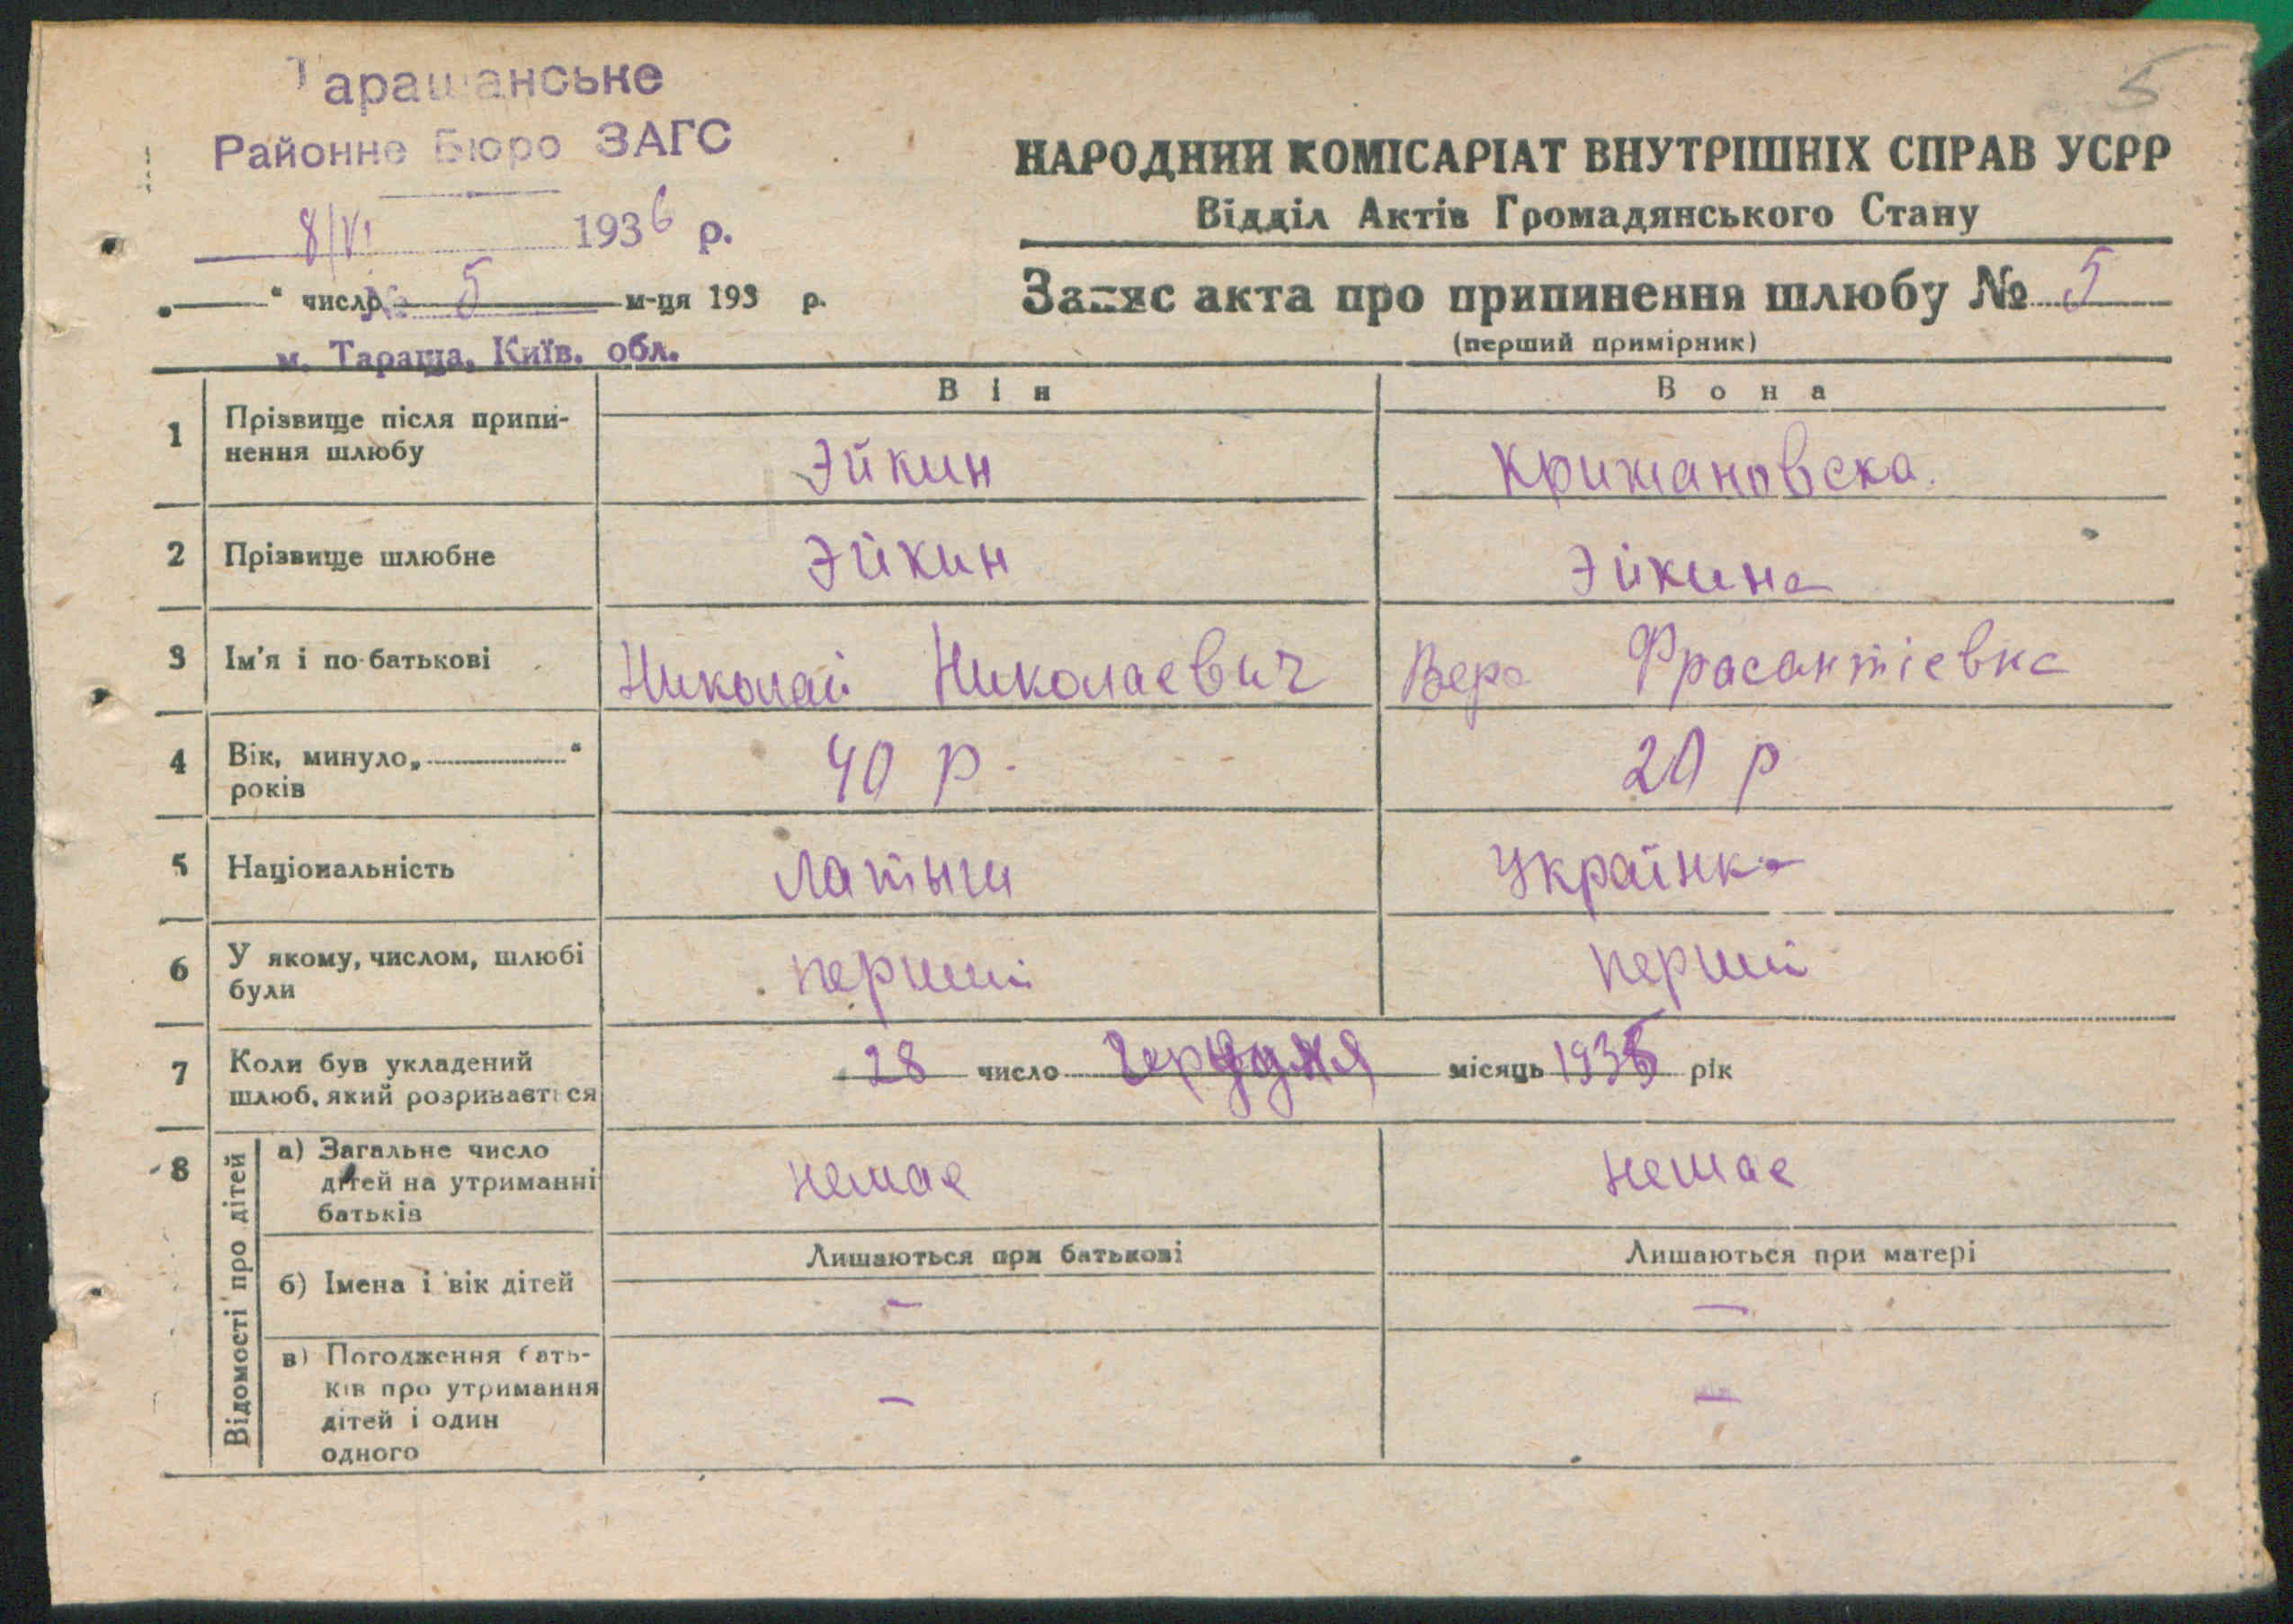 5
Таращанське
Районне Бюро ЗАГС
8/VI 1936 р.
„ “ число № 5 м-ця 193 р.
м. Тараща, Київ. обл.
НАРОДНИЙ КОМІСАРІАТ ВНУТРІШНІХ СПРАВ УСРР
Відділ Актів Громадянського Стану
Запис акта про припинення шлюбу № 5
(перший примірник)
Він Вона
1 Прізвище після припи-
нення шлюбу
Эйкин Крижановска.
2 Прізвище шлюбне Эйкин Эйкина
3 Ім'я і по-батькові Николай Николаевич Вера
4 Вік, минуло „ “
років
40 р. 20 р
5 Національність Латыш Українка
6 У якому, числом, шлюбі
були
перший перший
7 Коли був укладений
шлюб, який розривається
28 число місяць 1935 рік
8 Відомості про дітей
а) Загальне число
дітей на утриманні
батьків
немае немае
Лишаються при батькові Лишаються при матері
б) Імена і вік дітей – –
в) Погодження бать-
ків про утримання
дітей і один
одного
– –